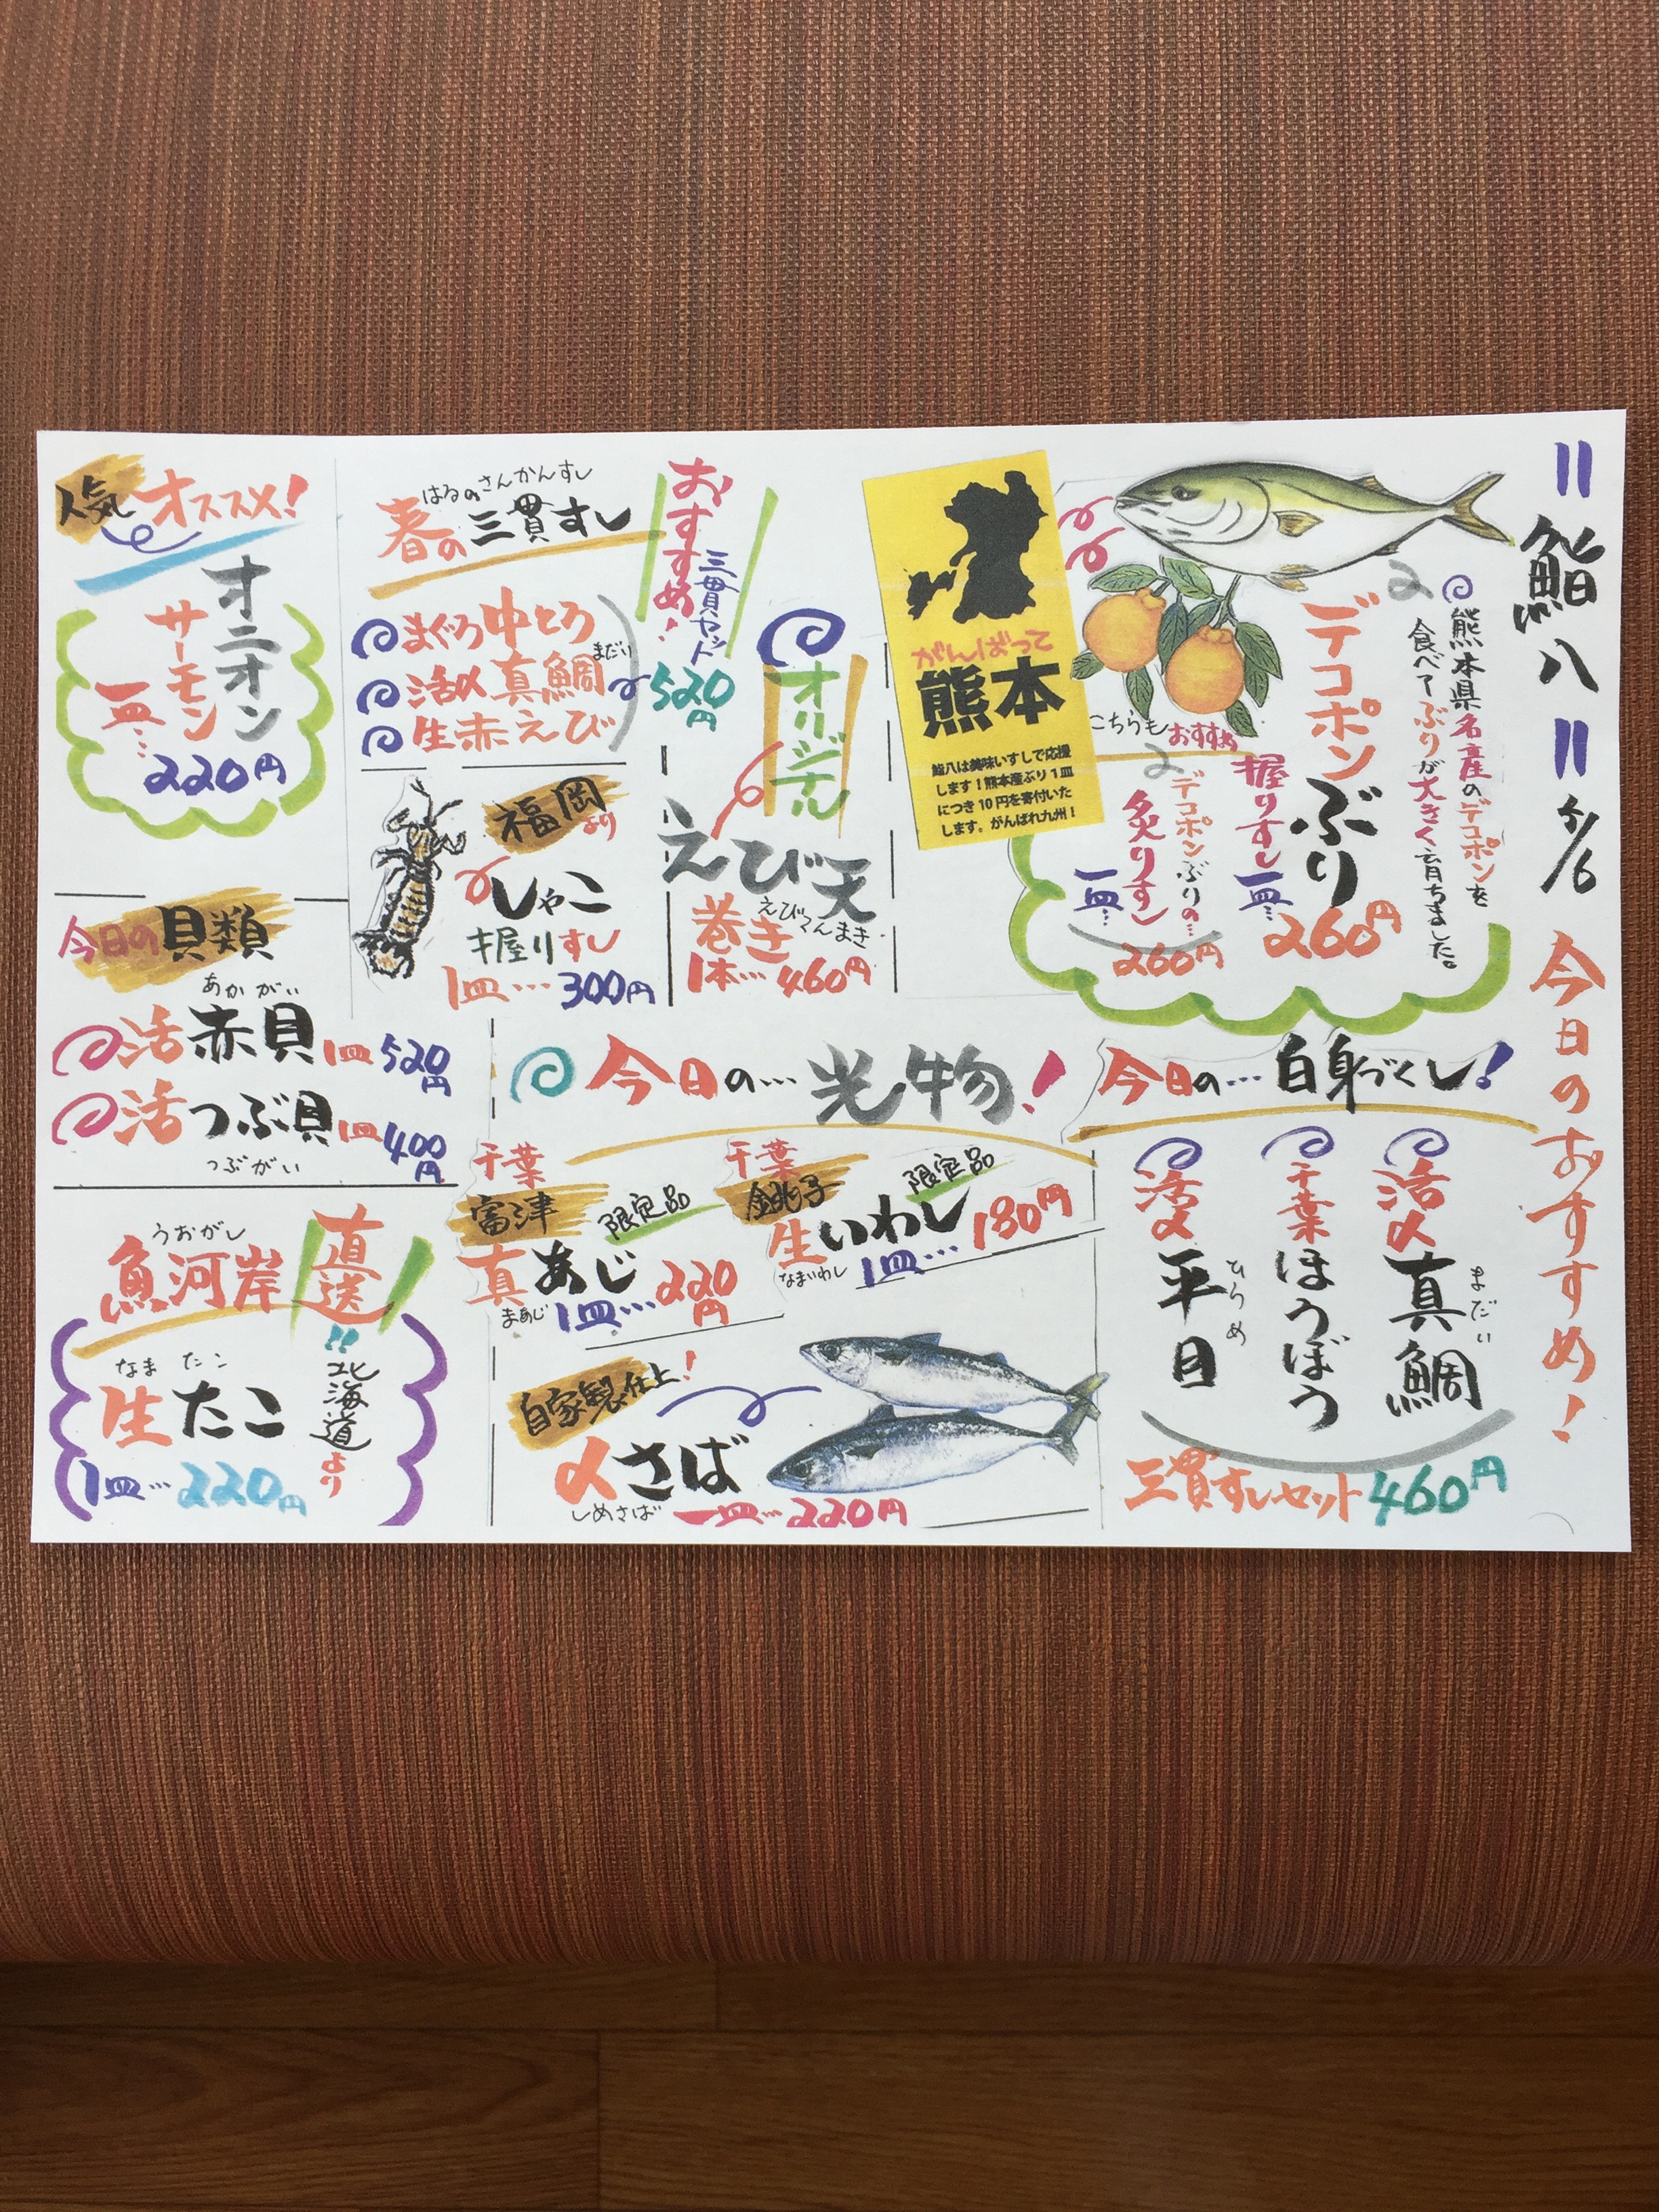 鮨八
5/6
今日のおすすめ!
熊本県名産のデコポンを
食べてぶりが大きく育ちました。
デコポンぶり
握りすし一皿…260円
こちらもおすすめ
デコポンぶりの…
炙りすし
一皿…260円
がんばって
熊本
鮨八は美味いすしで応援
します!熊本産ぶり1皿
につき10円を寄付いた
します。がんばれ九州!
オリジナル
えび天
えびてんまき
巻き
1本…460円
おすすめ!
三貫セット
520円
はるのさんかんすし
春の三貫すし
まぐろ中とろ
まだい
活〆真鯛
生赤えび
福岡より
しゃこ
握りすし
1皿…300円
人気オススメ!
オニオン
サーモン
一皿…
220円
今日の貝類
あかがい
活赤貝1皿520円
活つぶ貝1皿400円
つぶがい
うおがし
魚河岸直送!!
北海道より
なまたこ
生たこ
1皿…220円
今日の…光物!
千葉
富津
限定品
真あじ
まあじ
1皿…220円
千葉
銚子
限定品
生いわし
なまいわし
1皿…180円
自家製仕上!
〆さば
しめさば
一皿…220円
今日の…白身づくし!
活〆真鯛
まだい
千葉ほうぼう
活〆平目
ひらめ
三貫すしセット460円